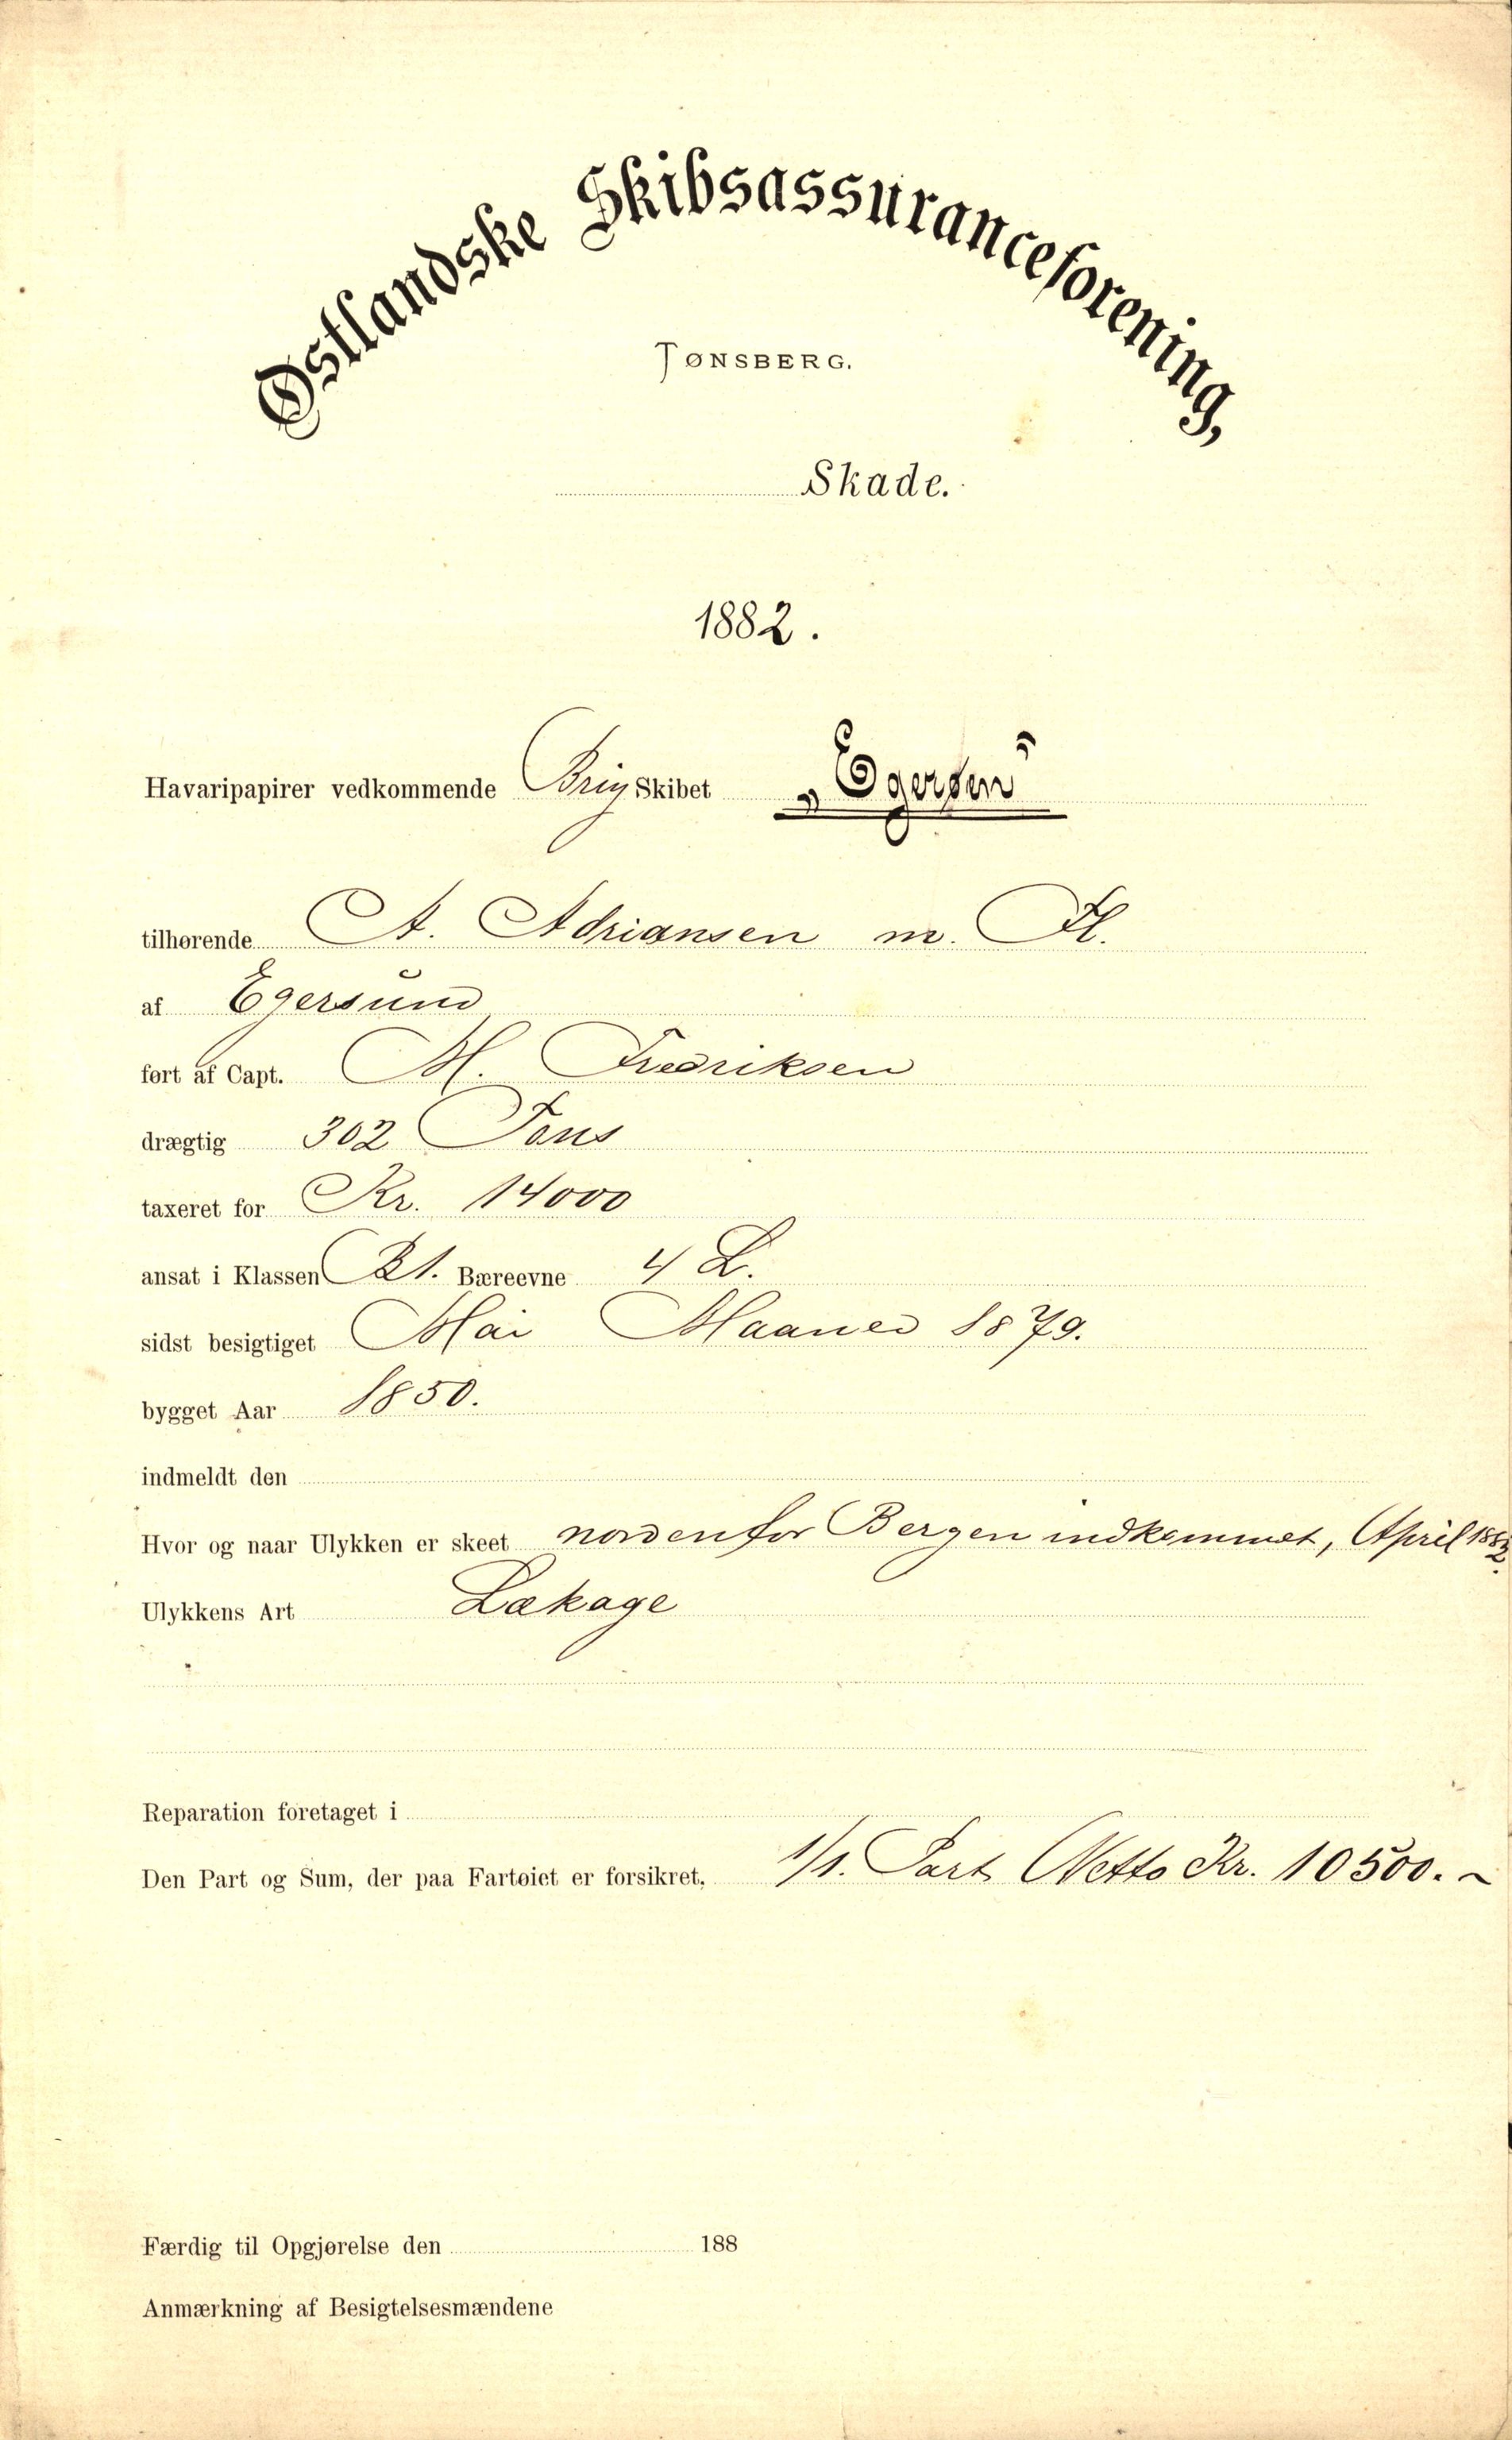 Østlandske Skibsassuranceforening,
TØNSBERG.
Skade.
1882.
Havaripapirer vedkommende Brig Skibet „Egersen“
tilhørende A. Adriansen m. Fl.
af Egersund
ført af Capt. M. Fredriksen
drægtig 302 Tons
taxeret for Kr. 14000
ansat i Klassen B1. Bæreevne 4 L.
sidst besigtiget Mai Maaned 1879.
bygget Aar 1850.
indmeldt den
Hvor og naar Ulykken er skeet nordenfor Bergen indkommet, April 1882.
Ulykkens Art Lækage
Reparation foretaget i
Den Part og Sum, der paa Fartøiet er forsikret, 1/1. Part Netto Kr. 10500. ~
Færdig til Opgjørelse den 188
Anmærkning af Besigtelsesmændene